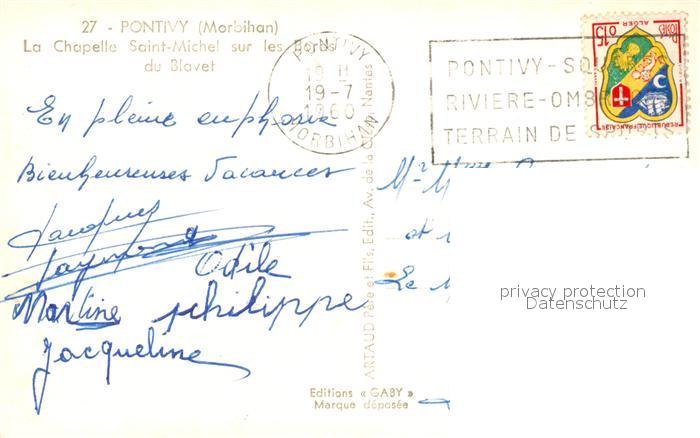 27 - PONTIVY (Morbihan)
La Chapelle Saint-Michel sur les Bords
du Blavet
PONTIVY
19 H
19-7
1960
MORBIHAN
PONTIVY-SQ
RIVIERE-OMB
TERRAIN DE SPORTS
POSTES
0,15
ALGER
REPUBLIQUE FRANÇAISE
En pleine euphorie
Bienheureuses Vacances
Jacques
Raymonde
Odile
Martine philippe
Jacqueline
Mr M
et
Le
ARTAUD Père et Fils, Edit., Av. de la Nantes
Editions « GABY »
Marque déposée
privacy protection
Datenschutz